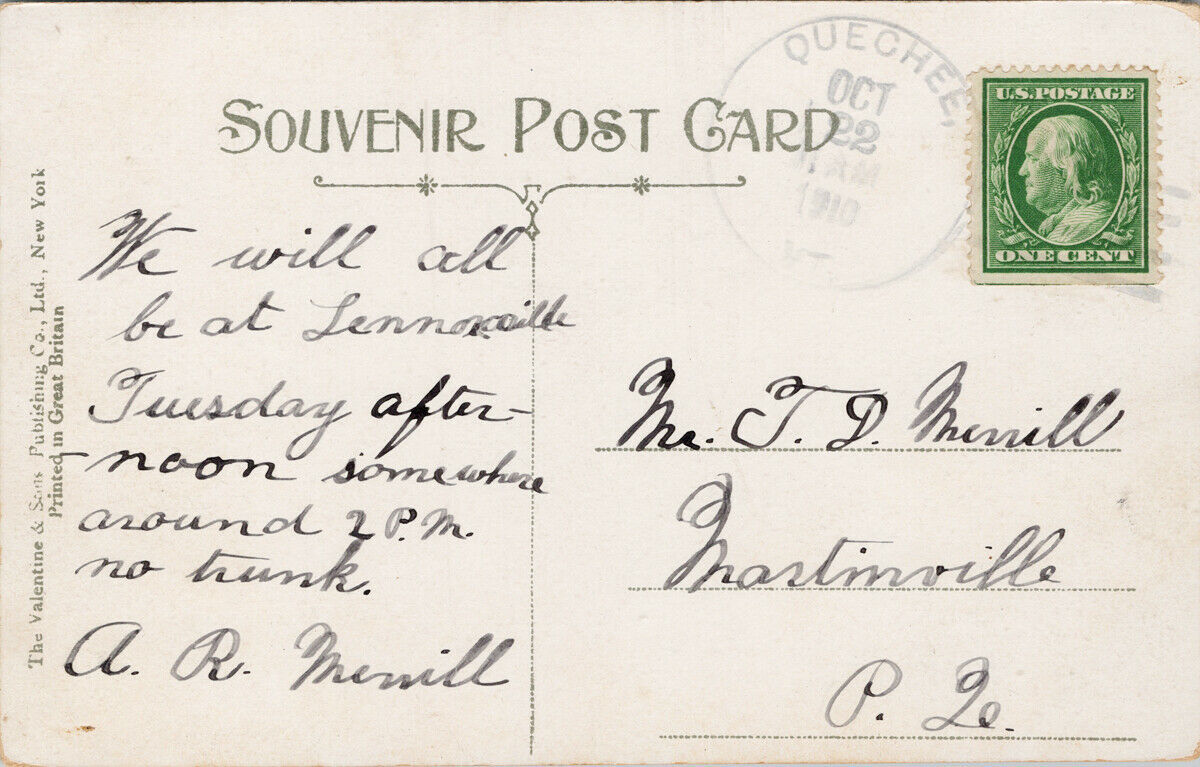 SOUVENIR POST CARD
QUECHEE,
OCT
22
AM
1910
U.S. POSTAGE
ONE CENT
The Valentine & Sons Publishing Co., Ltd., New York
Printed in Great Britain
We will all
be at Lennoxville
Tuesday after-
-noon somewhere
around 2 P.M.
no trunk.
A. R. Merrill
Mr. T. D. Merrill
Martinville
P. Qe.